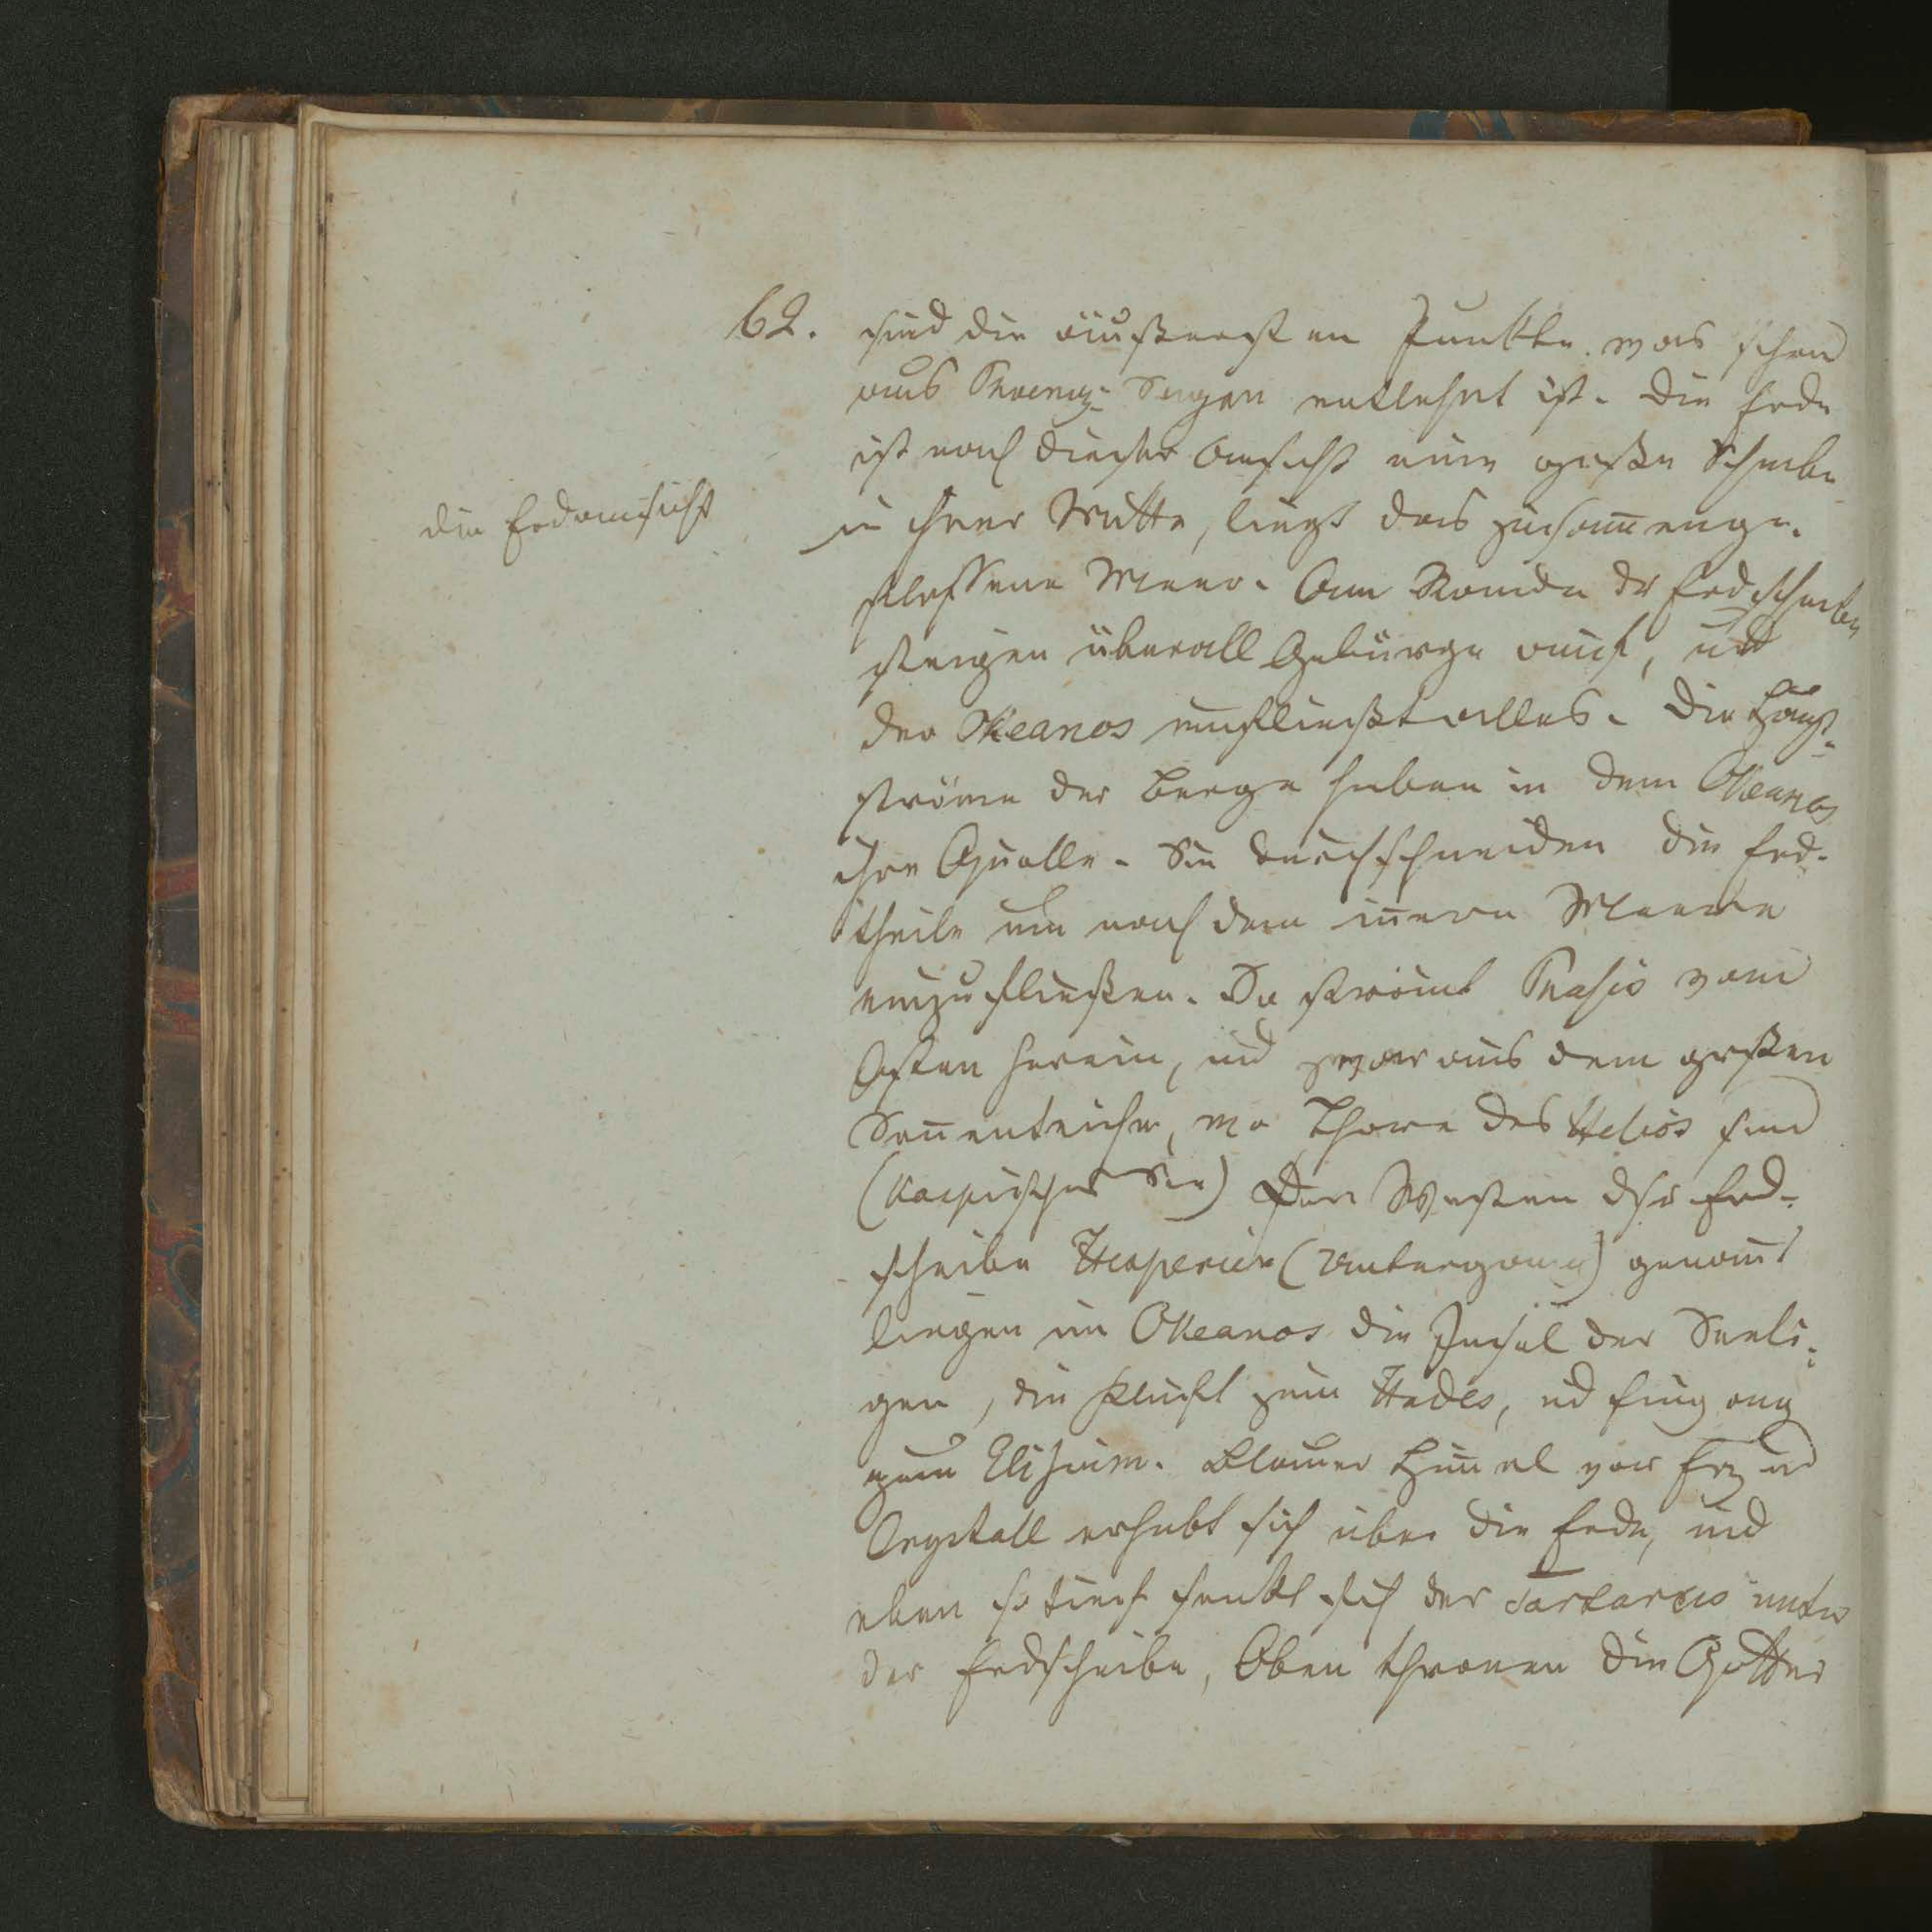 62. sind die äußersten Punkte. was schon
aus Phoeniz: Sagen entlehnt ist. Die Erde
ist nach dieser Ansicht eine große Scheibe
die Erdansicht
in ihrer Mitte, liegt das zusam̅enge-
floßene Meer. Am Rande der Erdscheibe
steigen überall Gebürge auf, und
der Okeanos umfließt alles. Die Haupt-
ströme der Berge haben in dem Okeanos
ihre Quelle. Sie durchschneiden die Erd-
theile um nach dem in̅ern Meere
einzufließen. Da strömt Phasis vom
Osten herein, und zwar aus dem großen
Son̅enteiche, wo Thore des Helios sind
(Kaspischer See) Den Westen der Erd-
scheibe Hesperien (Untergang) genan̅t
liegen im Okeanos die Insel der Seeli-
gen, die Kluft zum Hades, und
zum Elisium. Blauer Him̅el von Erz und
Crystall erhebt sich über die Erde, und
eben so tief senkt sich der Tartarus unter
der Erdscheibe, Oben thronen die Götter